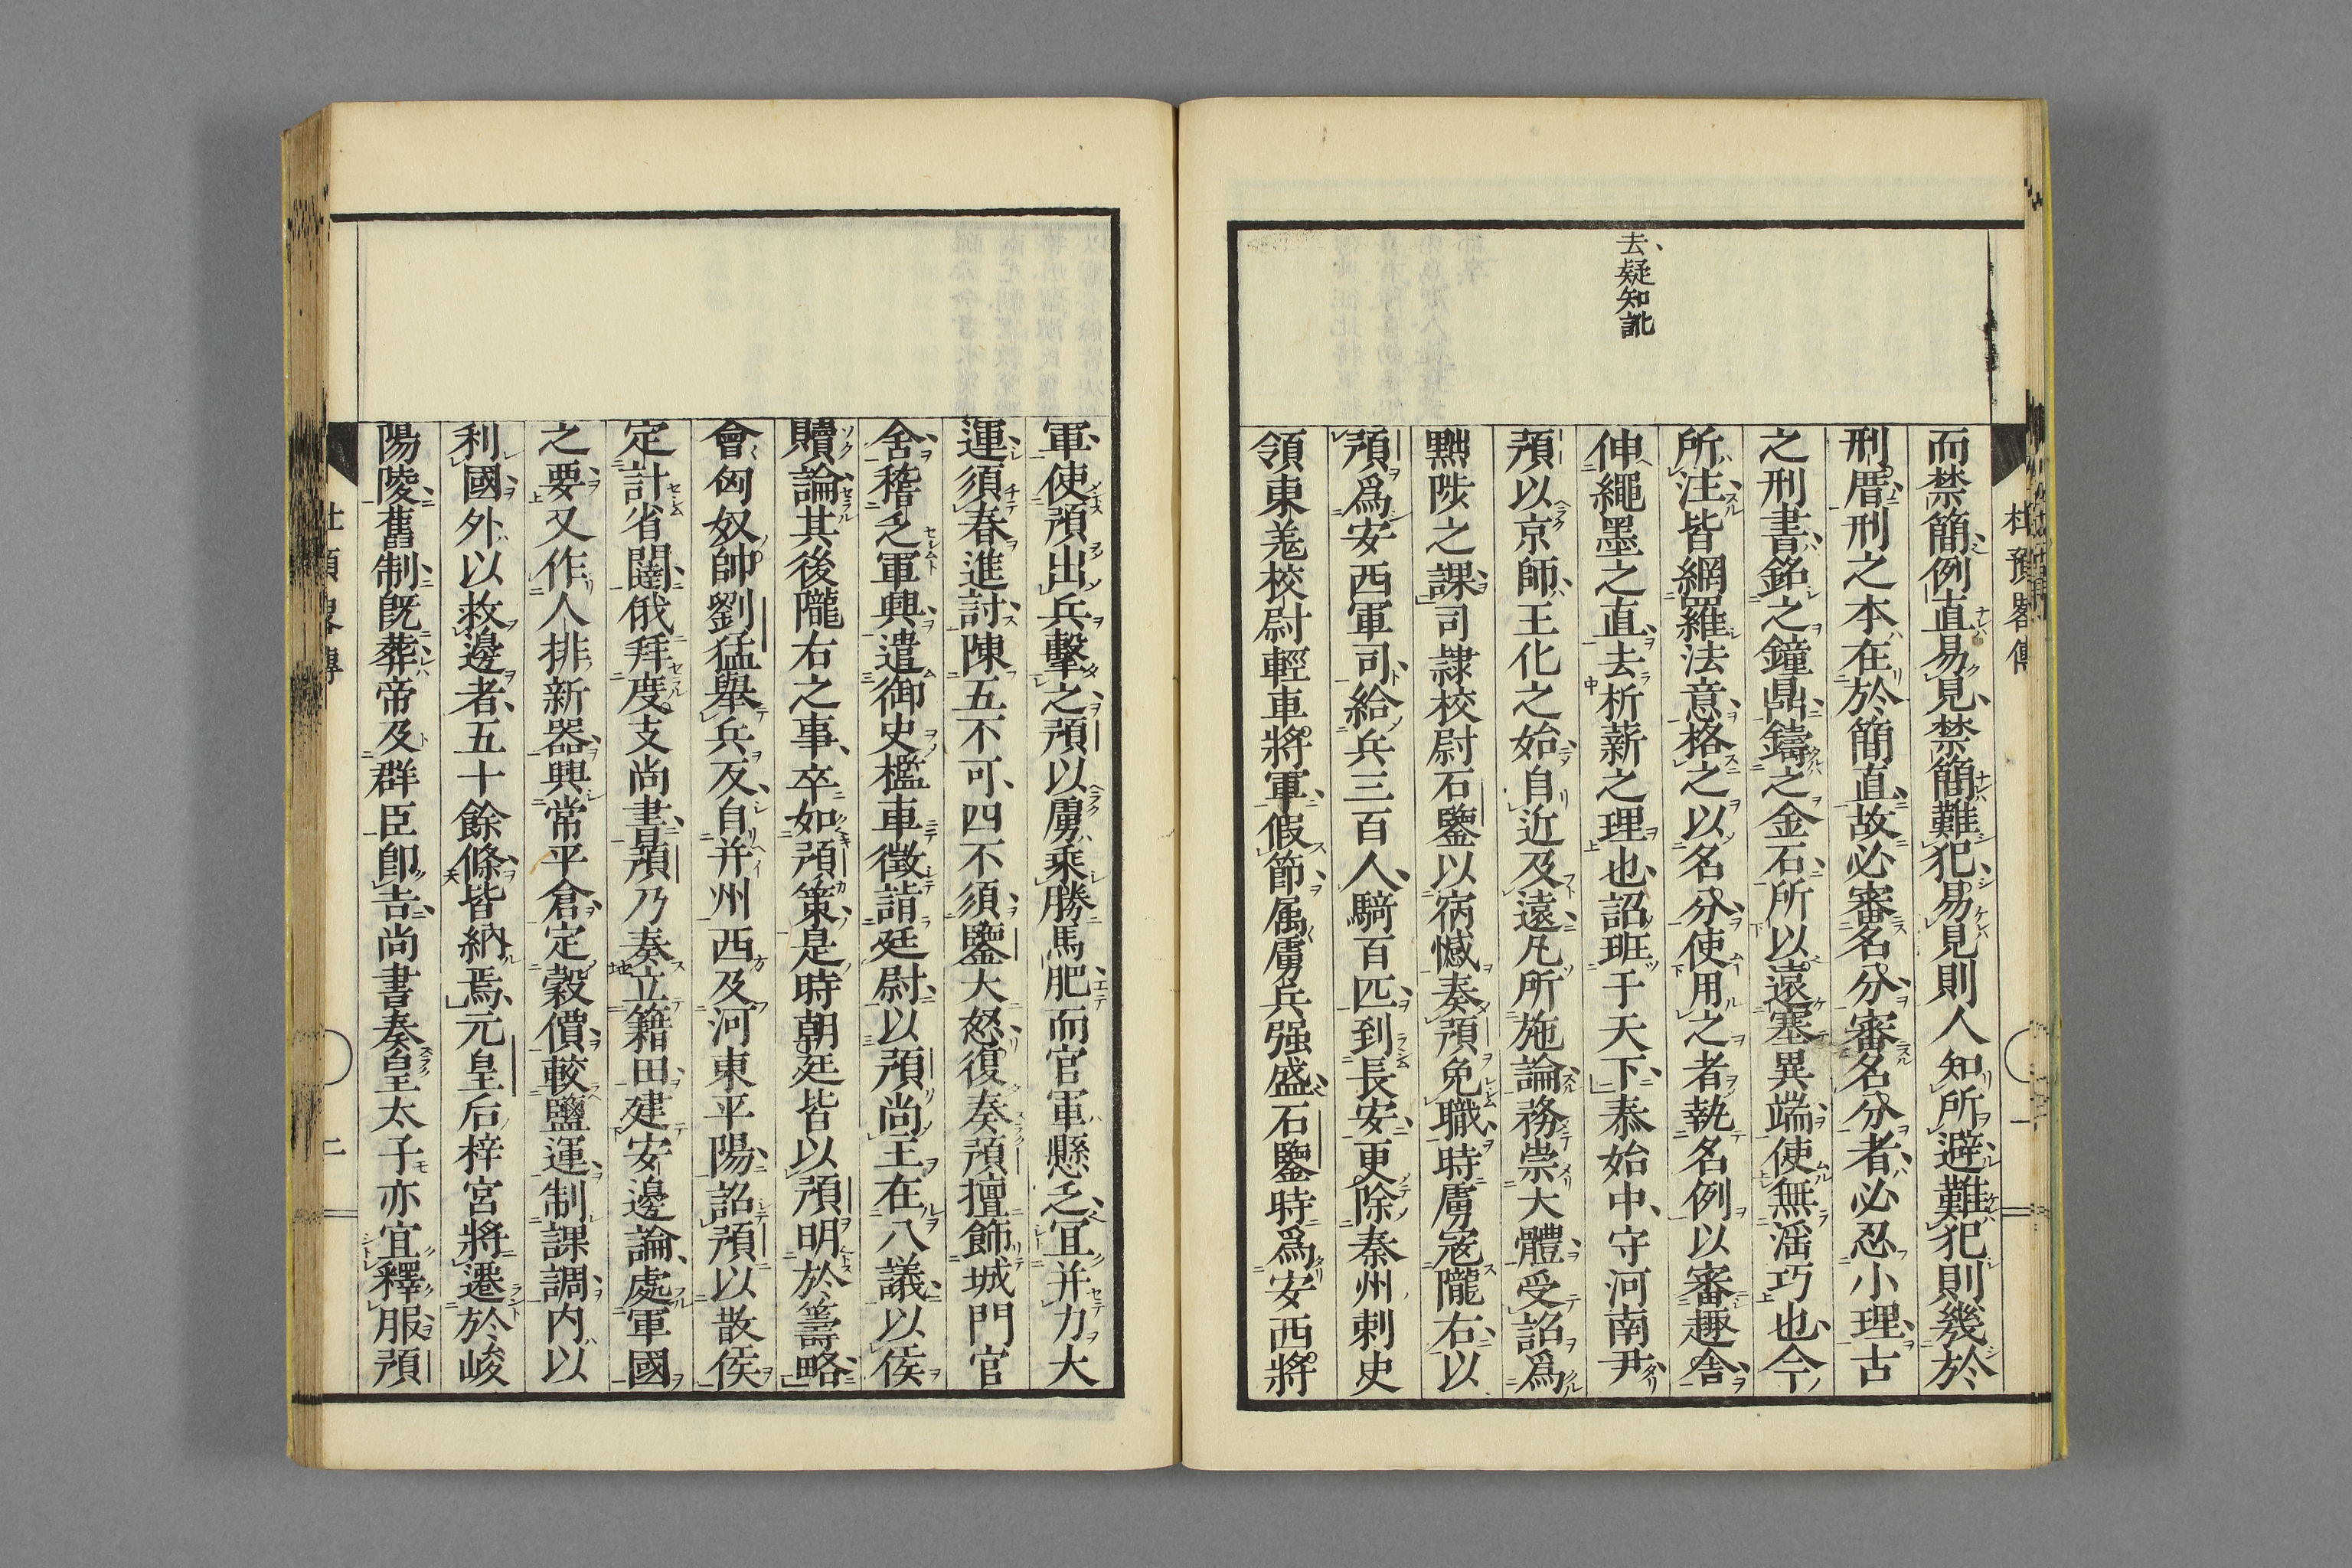 去疑知訛
而禁簡例直易見禁簡難犯易見則人知所避難犯則幾於
刑厝刑之本在於簡直故必審名分審名分者必忍小理古
之刑書銘之鐘鼎鑄之金石所以遠塞異端使無淫巧也今
所注皆網羅法意格之以名分使用之者執名例以審趣舍
伸繩墨之直去析薪之理也詔班于天下泰始中守河南尹
預以京師王化之始自近及遠凡所施論務崇大體受詔爲
黜陟之課司隷校尉石鑒以宿憾奏預免職時虜寇隴右以
預爲安西軍司給兵三百人騎百匹到長安更除秦州刺史
領東羌校尉輕車將軍假節属虜兵强盛石鑒時爲安西將
杜預畧傳
一
軍使預出兵擊之預以虜乘勝馬肥而官軍懸乏宜并力大
運須春進討陳五不可四不須鑒大怒復奏預擅飾城門官
舍稽乏軍興遣御史檻車徵詣廷尉以預尚主在八議以侯
贖論其後隴右之事卒如預策是時朝廷皆以預明於籌略
會匈奴帥劉猛舉兵反自并州西及河東平陽詔預以散侯
定計省闥俄拜度支尚書預乃奏立籍田建安邊論處軍國
之要又作人排新器興常平倉定穀價較鹽運制課調内以
利國外以救邊者五十餘條皆納焉元皇后梓宮將遷於峻
陽陵舊制既葬帝及群臣卽吉尚書奏皇太子亦宜釋服預